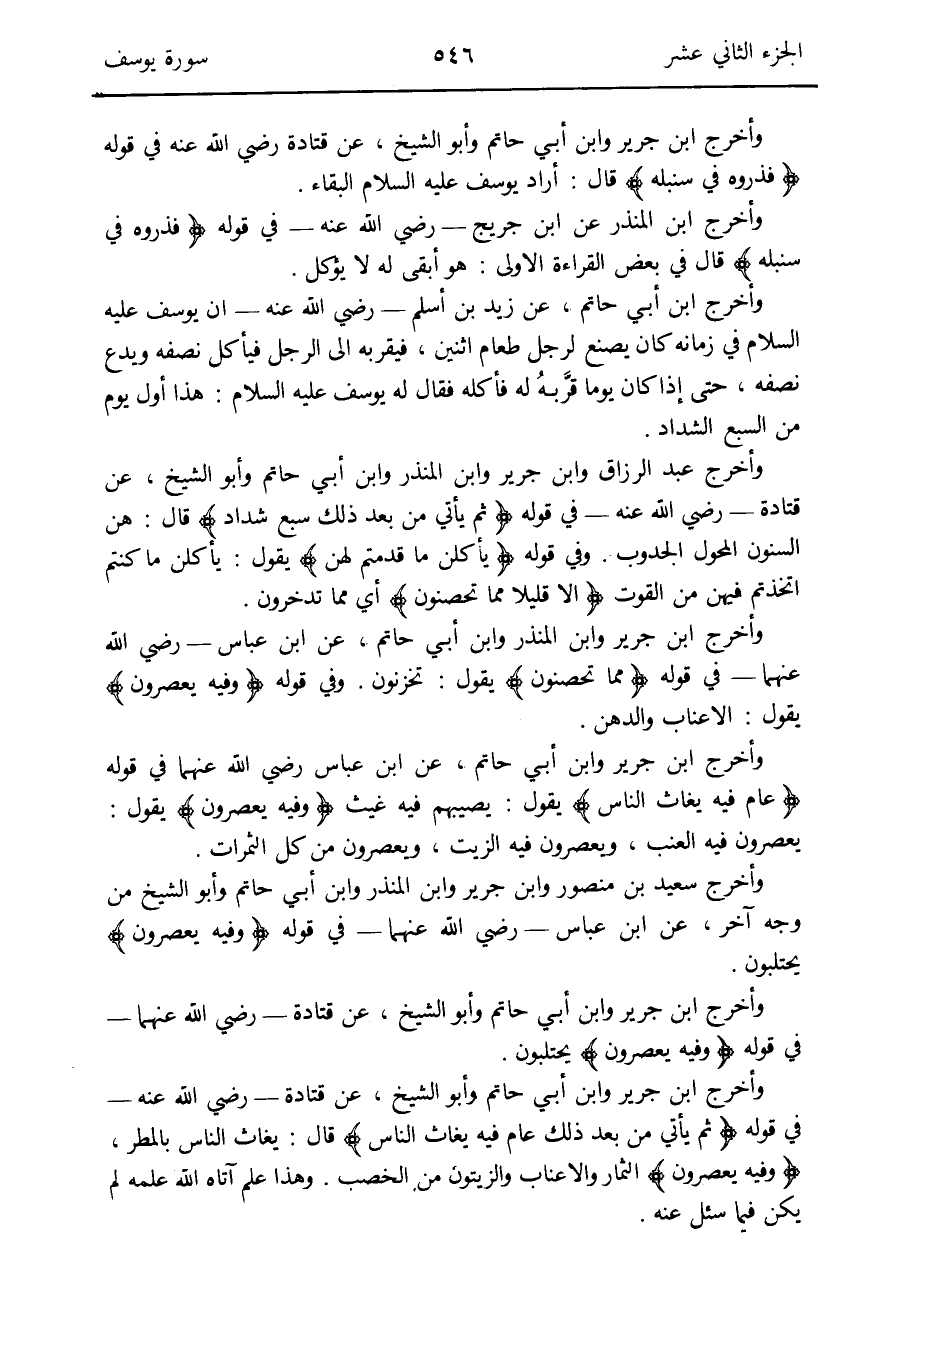 الجزء الثاني عشر ٥٤٦ سورة يوسف
وأخرج ابن جرير وابن أبي حاتم وأبو الشيخ ، عن قتادة رضي الله عنه في قوله
﴿ فذروه في سنبله ﴾ قال : أراد يوسف عليه السلام البقاء .
وأخرج ابن المنذر عن ابن جريج — رضي الله عنه — في قوله ﴿ فذروه في
سنبله ﴾ قال في بعض القراءة الاولى : هو أبقى له لا يؤكل .
وأخرج ابن أبي حاتم ، عن زيد بن أسلم — رضي الله عنه — ان يوسف عليه
السلام في زمانه كان يصنع لرجل طعام اثنين ، فيقربه الى الرجل فيأكل نصفه ويدع
نصفه ، حتى إذا كان يوما قرَّبهُ له فأكله فقال له يوسف عليه السلام : هذا أول يوم
من السبع الشداد .
وأخرج عبد الرزاق وابن جرير وابن المنذر وابن أبي حاتم وأبو الشيخ ، عن
قتادة — رضي الله عنه — في قوله ﴿ ثم يأتي من بعد ذلك سبع شداد ﴾ قال : هن
السنون المحول الجدوب . وفي قوله ﴿ يأكلن ما قدمتم لهن ﴾ يقول : يأكلن ما كنتم
اتخذتم فيهن من القوت ﴿ الا قليلا مما تحصنون ﴾ أي مما تدخرون .
وأخرج ابن جرير وابن المنذر وابن أبي حاتم ، عن ابن عباس — رضي الله
عنهما — في قوله ﴿ مما تحصنون ﴾ يقول : تخزنون . وفي قوله ﴿ وفيه يعصرون ﴾
يقول : الاعناب والدهن .
وأخرج ابن جرير وابن أبي حاتم ، عن ابن عباس رضي الله عنهما في قوله
﴿ عام فيه يغاث الناس ﴾ يقول : يصيبهم فيه غيث ﴿ وفيه يعصرون ﴾ يقول :
يعصرون فيه العنب ، ويعصرون فيه الزيت ، ويعصرون من كل الثمرات .
وأخرج سعيد بن منصور وابن جرير وابن المنذر وابن أبي حاتم وأبو الشيخ من
وجه آخر ، عن ابن عباس — رضي الله عنهما — في قوله ﴿ وفيه يعصرون ﴾
يحتلبون .
وأخرج ابن جرير وابن أبي حاتم وأبو الشيخ ، عن قتادة — رضي الله عنهما —
في قوله ﴿ وفيه يعصرون ﴾ يحتلبون .
وأخرج ابن جرير وابن أبي حاتم وأبو الشيخ ، عن قتادة — رضي الله عنه —
في قوله ﴿ ثم يأتي من بعد ذلك عام فيه يغاث الناس ﴾ قال : يغاث الناس بالمطر ،
﴿ وفيه يعصرون ﴾ الثمار والاعناب والزيتون من الخصب . وهذا علم آتاه الله علمه لم
يكن فيما سئل عنه .